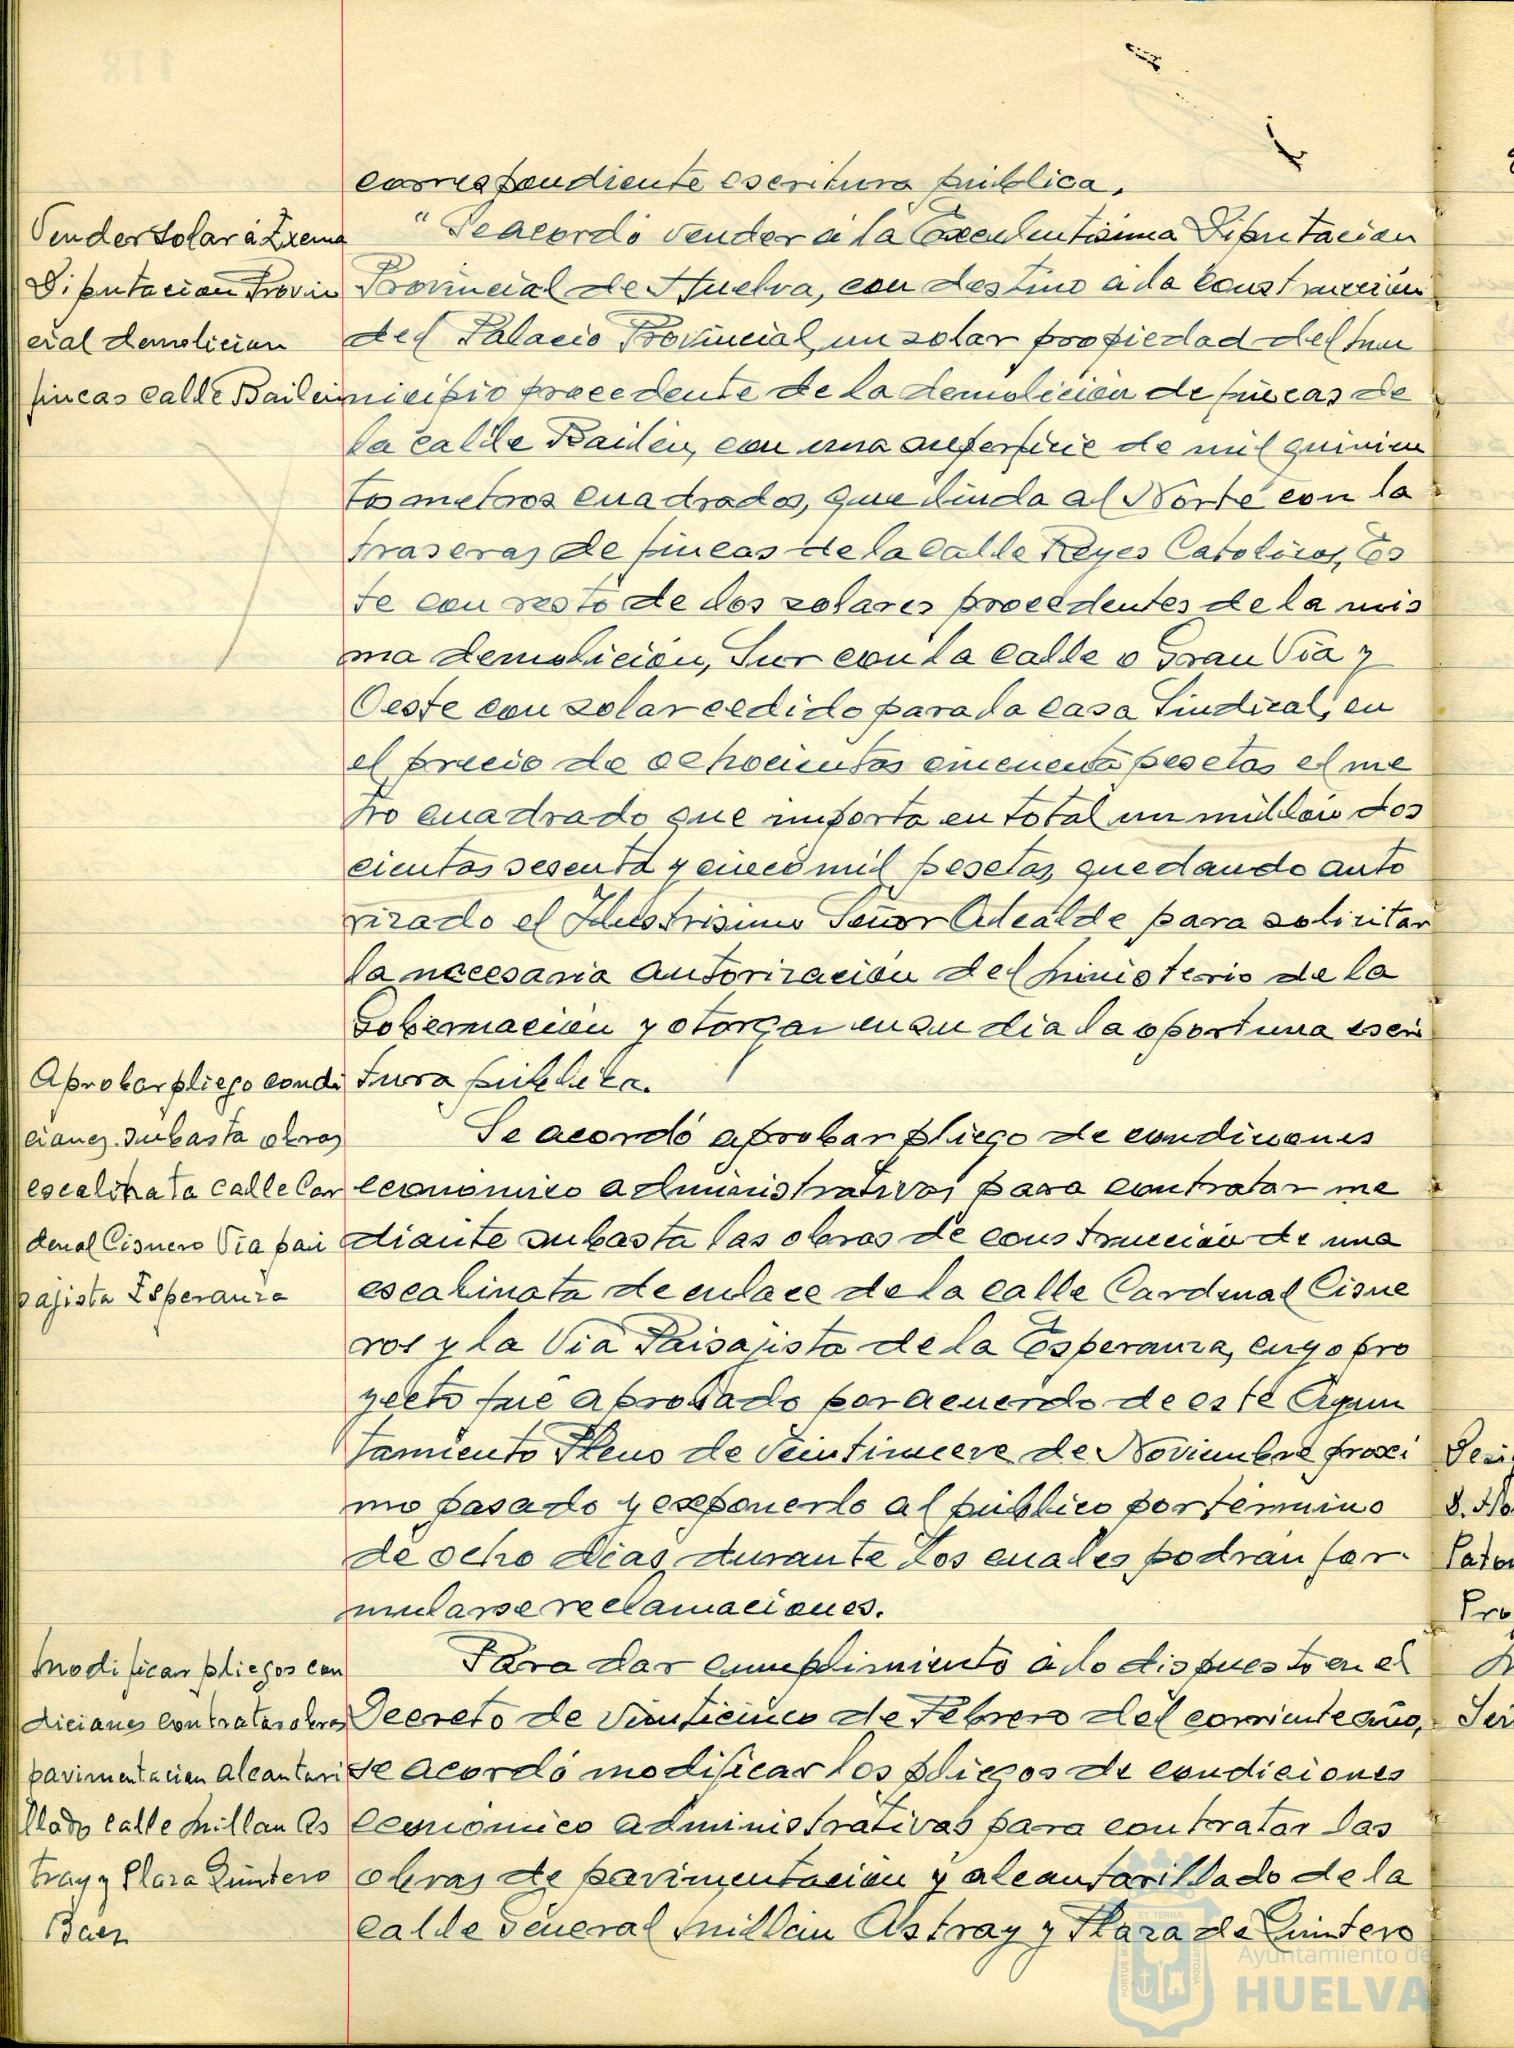 correspondiente escritura pública.
Vender solar á Exema
Diputacion Provin
cial demolicion
fincas calle Bailén
" Se acordó vender á la Excelentísima Diputacion
Provincial de Huelva, con destino á la construcción
del Palacio Provincial, un solar propiedad del mu
nicipio procedente de la demolición de fincas de
la calle Bailén, con una superficie de mil quinien
tos metros cuadrados, que linda al Norte con la
traseras de fincas de la calle Reyes Catolicos, Es
te con resto de los solares procedentes de la mis
ma demolición, Sur con la calle o Gran Vía y
Oeste con solar cedido para la casa Sindical, en
el precio de ochocientas cincuenta pesetas el me
tro cuadrado que importa en total un millón dos
cientas sesenta y cinco mil pesetas, quedando auto
rizado el Ilustrisimo Señor Alcalde para solicitar
la necesaria autorización del Ministerio de la
Gobernación y otorgar en su dia la oportuna escri
tura pública.
Aprobar pliego condi
ciones subasta obras
escalinata calle Car
denal Cisnero Via pai
sajista Esperanza
Se acordó aprobar pliego de condiciones
económico administrativas para contratar me
diante subasta las obras de construcción de una
escalinata de enlace de la calle Cardenal Cisne
ros y la Vía Paisajista de la Esperanza, cuyo pro
yecto fué aprobado por acuerdo de este Ayun
tamiento Pleno de veintinueve de Noviembre proxi
mo pasado y exponerlo al público por término
de ocho días, durante los cuales podrán for-
mularse reclamaciones.
Modificar pliegos con
diciones contratar obras
pavimentacion alcantari
llado calle Millan As
tray y Plaza Quintero
Baez
Para dar cumplimiento á lo dispuesto en el
Decreto de Vinticinco de Febrero del corriente año,
se acordó modificar los pliegos de condiciones
económico administrativas para contratar las
obras de pavimentación y alcantarillado de la
calle General Millán Astray y Plaza de Quintero
Ayuntamiento de
HUELVA